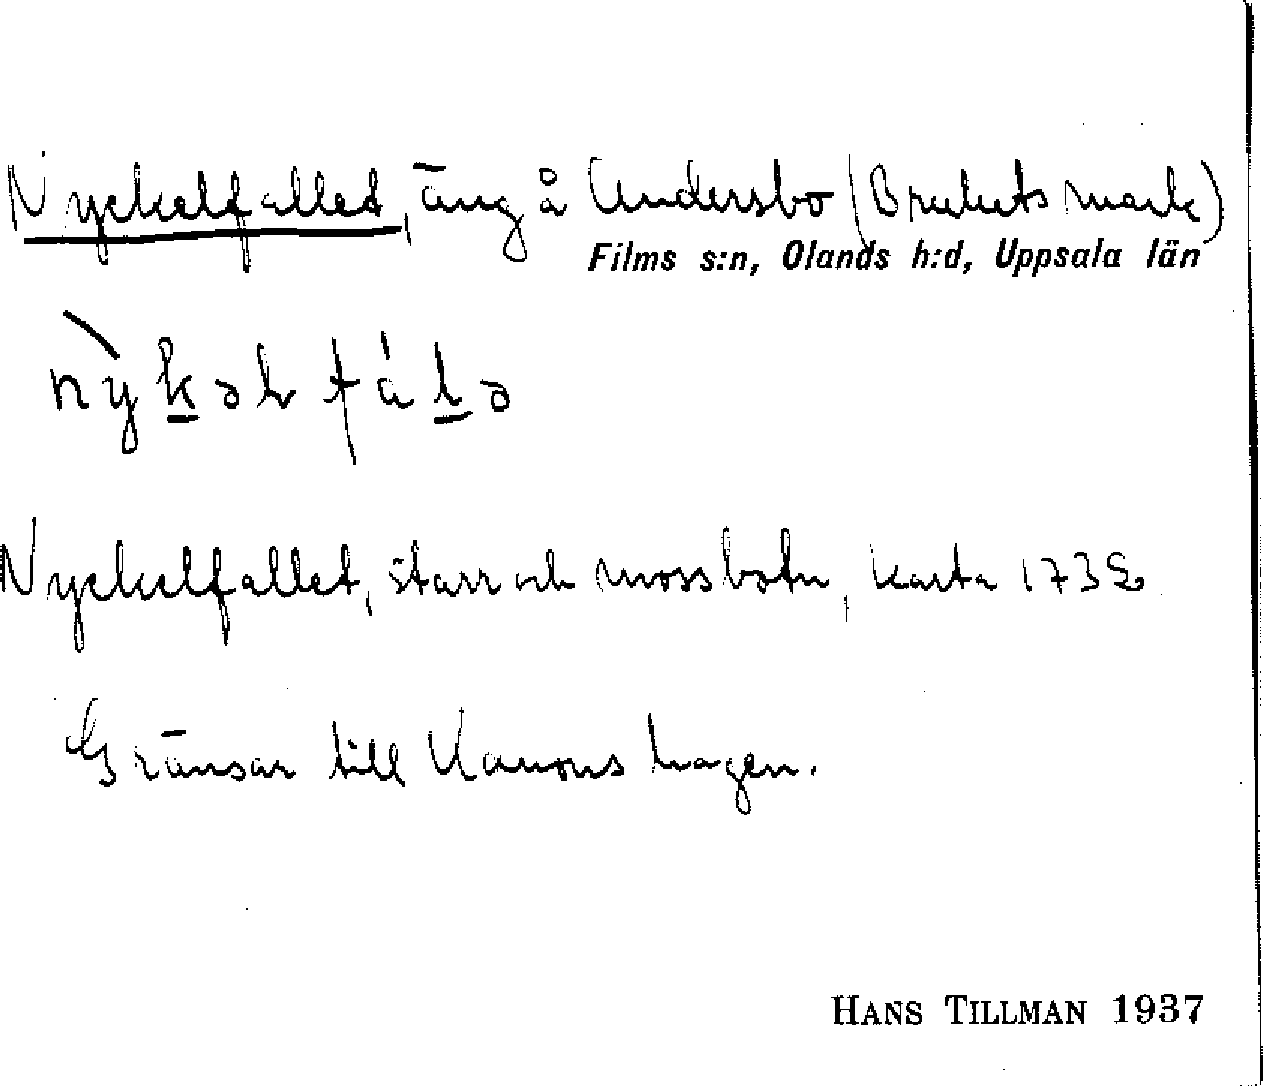 Nyckelfallet, äng å Andersbo (Brukets mark)
Films s:n, Olands h:d, Uppsala län
nỳk̲əl fálə̲
Nyckelfallet, starr och mossbotn, karta 1732
Gränsar till Kanonshagen.
HANS TILLMAN 1937